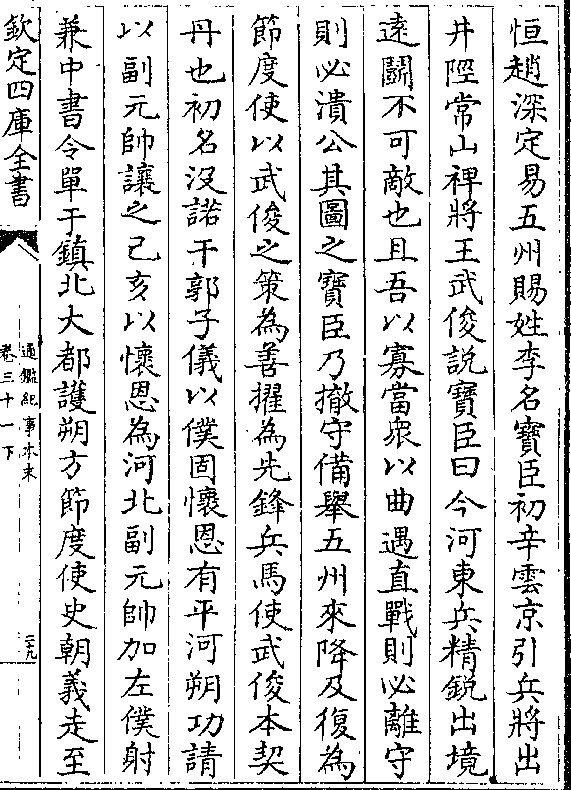 恒趙深定易五州賜姓李名寶臣初辛雲京引兵將出
井陘常山裨將王武俊說寶臣曰今河東兵精銳出境
遠鬭不可敵也且吾以寡當衆以曲遇直戰則必離守
則必潰公其圖之寶臣乃撤守備舉五州來降及復為
節度使以武俊之策為善擢為先鋒兵馬使武俊本契
丹也初名沒諾干郭子儀以僕固懷恩有平河朔功請
以副元帥讓之己亥以懷恩為河北副元帥加左僕射
兼中書令單于鎮北大都護朔方節度使史朝義走至
欽定四庫全書
通鑑紀事本末
卷三十一下
二九